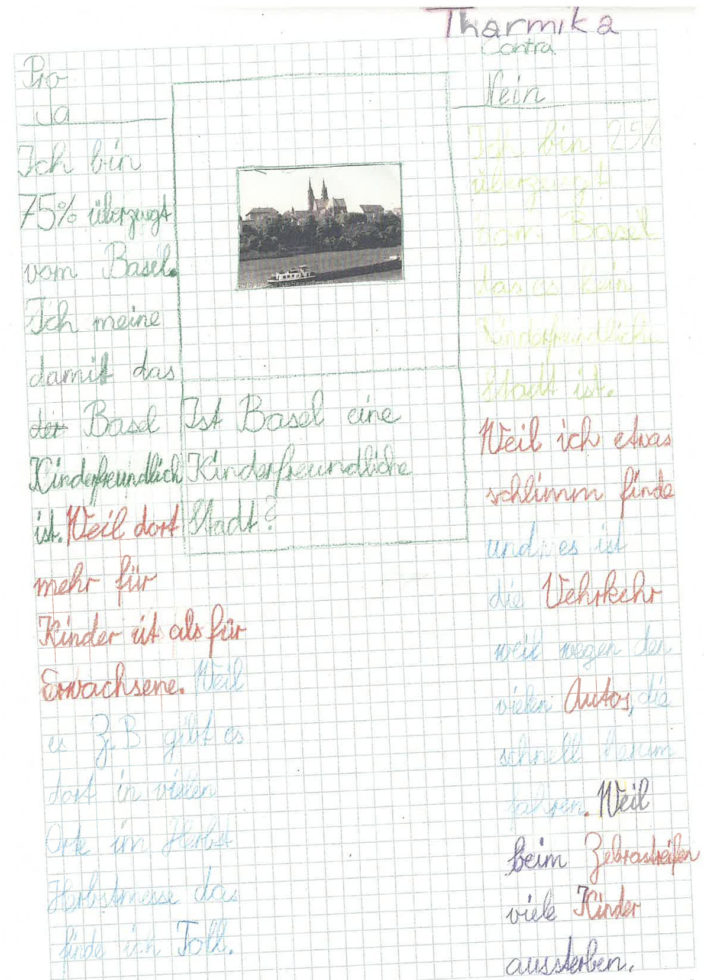 Tharmika
Pro
Ja
Ich bin
75% überzugt
vom Basel.
Ich meine
damit das
der Basel
Kinderfreundlich
ist. Weil dort
mehr für
Kinder ist als für
Erwachsene. Weil
es Z.B gibt es
dort in vielen
Orte im Herbst
Herbstmesse das
finde ich Toll.
Ist Basel eine
Kinderfreundliche
Stadt?
Contra
Nein
Ich bin 25%
überzeugt
vom Basel
das es kein
Kinderfreundliche
Stadt ist.
Weil ich etwas
schlimm finde
und es ist
die Vehrkehr
weil wegen den
vielen Autos, die
schnell herum
fahren. Weil
beim Zebrastreifen
viele Kinder
aussterben.